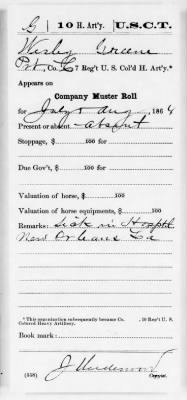 G | 10 H. Art'y. | U.S.C.T.
Wesley Greene
Pvt, Co. C, 7 Reg't U. S. Col'd H. Art'y.*
Appears on
Company Muster Roll
for July & Aug, 1864
Present or absent absent
Stoppage, $ 100 for
Due Gov't, $ 100 for
Valuation of horse, $ 100
Valuation of horse equipments, $ 100
Remarks: Sick in Hospital
New Orleans La
*This organization subsequently became Co. , 10 Reg't U. S.
Colored Heavy Artillery.
Book mark:
J Underwood
(358) Copyist.